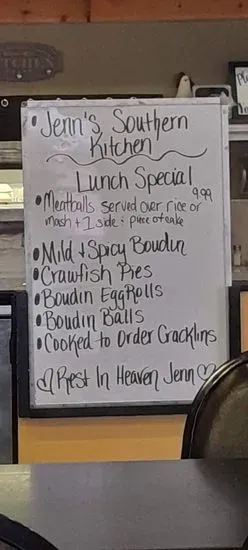 KITCHEN
• Jenn's Southern
Kitchen
Lunch Special
9.99
• Meatballs served over rice or
mash + 1 side + piece of cake
• Mild + Spicy Boudin
• Crawfish Pies
• Boudin EggRolls
• Boudin Balls
• Cooked to Order Cracklins
♡ Rest In Heaven Jenn ♡